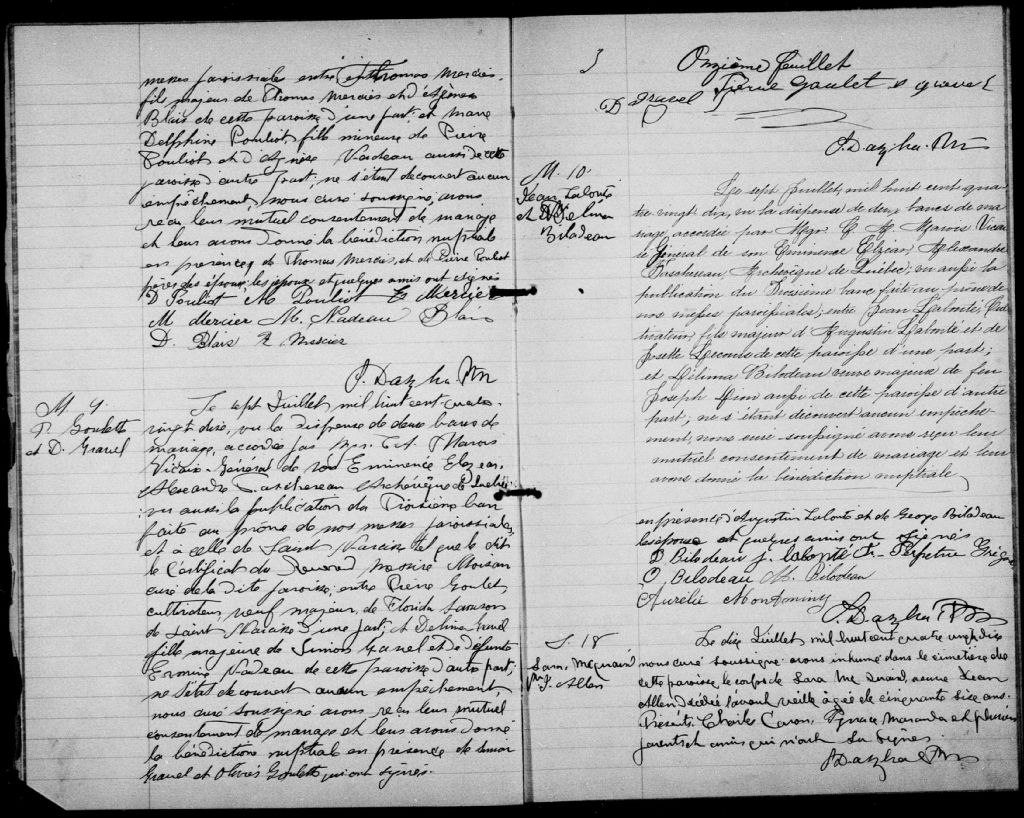 messes paroissiales entre Thomas Mercier,
fils majeur de Thomas Mercier et d'Agénie
Blais de cette paroisse d'une part; et Marie
Delphine Pouliot, fille mineure de Pierre
Pouliot et d'Agnèse Nadeau aussi de cette
paroisse d'autre part; ne s'étant découvert aucun
empêchement, nous curé soussigné, avons
reçu leur mutuel consentement de mariage
et leur avons donné la bénédiction nuptiale
en présence de Thomas Mercier, et de Pierre Pouliot
pères des époux; les époux et quelques amis ont signés
D Pouliot M Pouliot Mercier
M Mercier M. Nadeau Blais
D. Blais R. Mercier
M. 9.
P. Goulett
et D. Gravel
Le sept Juillet mil huit cent quatre-
vingt dix, vu la dispense de deux bans de
mariage, accordée par Mgr. C. A. Marois
Vicaire-Général de son Eminence Elzéar-
Alexandre Taschereau Archevêque de Québec;
vu aussi la publication du Troisième ban
faite au prône de nos messes paroissiales,
et à celle de Saint Narcisse tel que le dit
le Certificat du Révérend Messire Moisan
curé de la dite paroisse, entre Pierre Goulet,
cultivateur, veuf majeur, de Florida
de Saint Narcisse d'une part; et Delima Gravel
fille majeure de Simon Gravel et de défunte
Ermine Nadeau de cette paroisse d'autre part;
ne s'étant découvert aucun empêchement,
nous curé soussigné avons reçu leur mutuel
consentement de mariage et leur avons donné
la bénédiction nuptiale en présence de Simon
Gravel et Olivier Goulette qui ont signés.
Onzième feuillet
D Gravel Pierre Goulet
M. 10.
Jean Lalonté
et Délima
Bilodeau
Le sept Juillet, mil huit cent qua-
tre vingt dix, vu la dispense de deux bancs de ma-
riage, accordée par Mgr. C. A. Marois Vicai-
re Général de son Eminence Elzéar, Alexandre
Taschereau, Archevêque de Québec; vu aussi la
publication du Troisième banc faite au prône de
nos messes paroissiales; entre Jean Lalonté, Cul-
tivateur, fils majeur d'Augustin Lalonté et de
Josette Lecours de cette paroisse d'une part;
et Délima Bilodeau veuve majeure de feu
Joseph aussi de cette paroisse d'autre
part; ne s'étant découvert aucun empêche-
ment, nous curé soussigné avons reçu leur
mutuel consentement de mariage et leur
avons donné la bénédiction nuptiale
en présence d'Augustin Lalonté et de George Bilodeau
les époux et quelques amis ont signés
D Bilodeau J. Lalonté
O. Bilodeau M. Bilodeau
Aurélie Montminy
S. 18
Sara McQuaid
J. Allen
Le dix Juillet mil huit cent quatre vingt dix
nous curé soussigné avons inhumé dans le cimetière de
cette paroisse le corps de Sara Mc veuve Jean
Allen décédée l'avant veille âgée de cinquante six ans.
Présents Charles Caron, Ignace Maranda et plusieurs
parents et amis qui n'ont su signer.